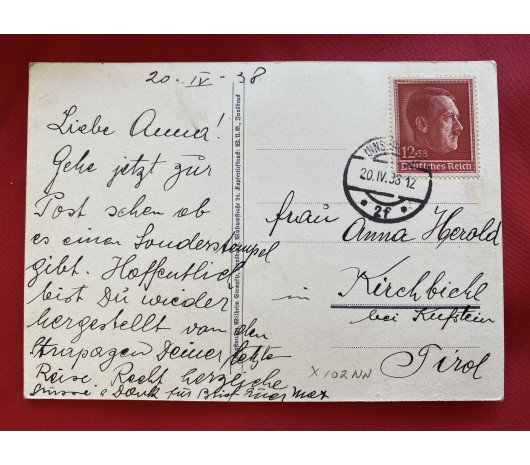 20. IV - 38
Liebe Anna!
Gehe jetzt zur
Post sehen ob
es einen Sonderstempel
gibt. Hoffentlich
bist Du wieder
hergestellt von den
Strapazen Deiner letzten
Reise. Recht herzliche
Grüsse & Dank für Brief Euer Max
12+38
Deutsches Reich
INNS
20.IV.38 12
* 2f *
Frau Anna Herold
in Kirchbichl
bei Kufstein
Tirol
X102NN